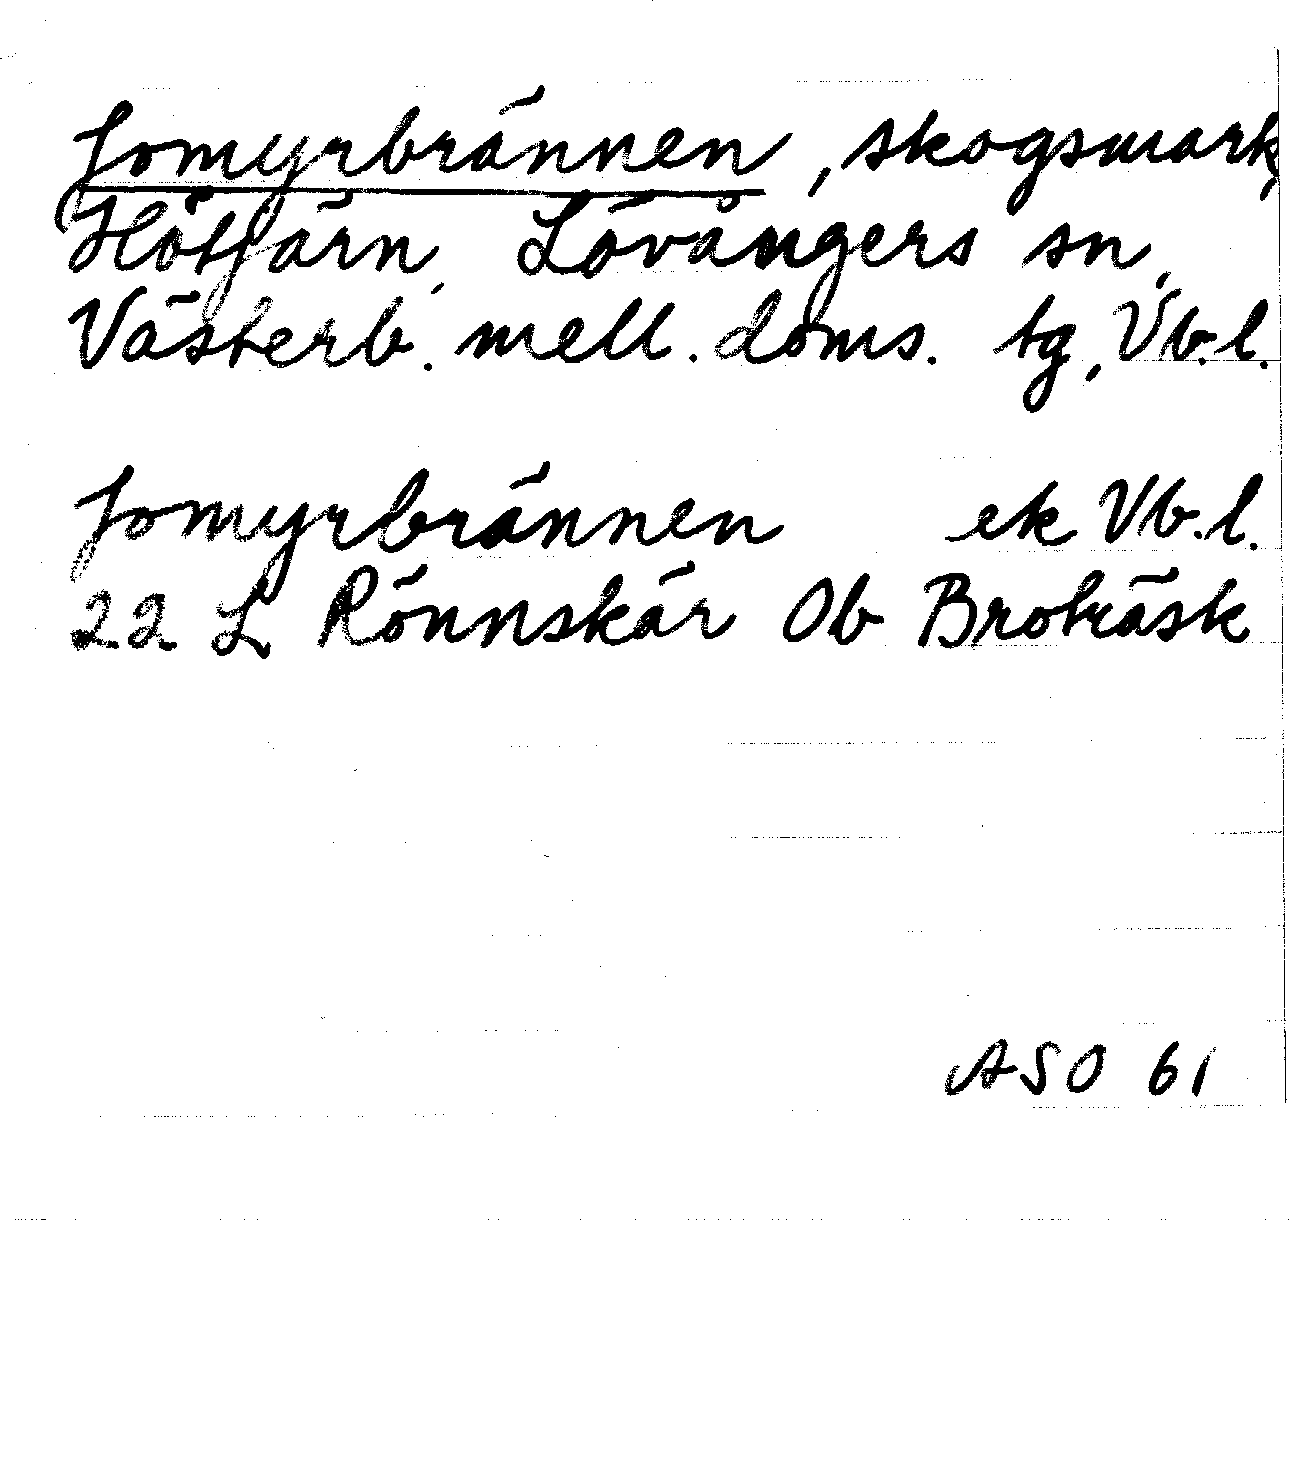 Jomyrbrännen, skogsmark,
Hötjärn, Lövångers sn,
Västerb. mell. doms. tg, Vb.l.
Jomyrbrännen ek Vb.l.
22 L Rönnskär Ob Broträsk
ASO 61